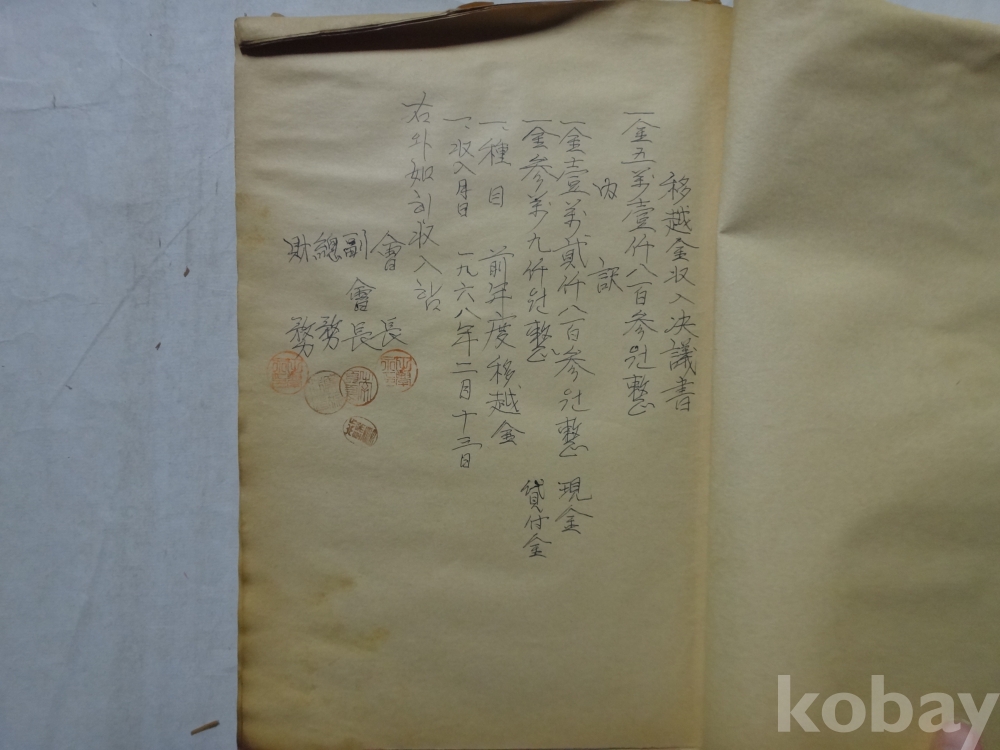 移越金収入決議書
一金五萬壹仟八百参원整
内訳
一金壹萬貳仟八百参원整 現金
一金参萬九仟원整 貸付金
一、種目 前年度移越金
一、収入月日 一九六八年二月十三日
右와如히収入함
會長
副會長
總務
財務
kobay